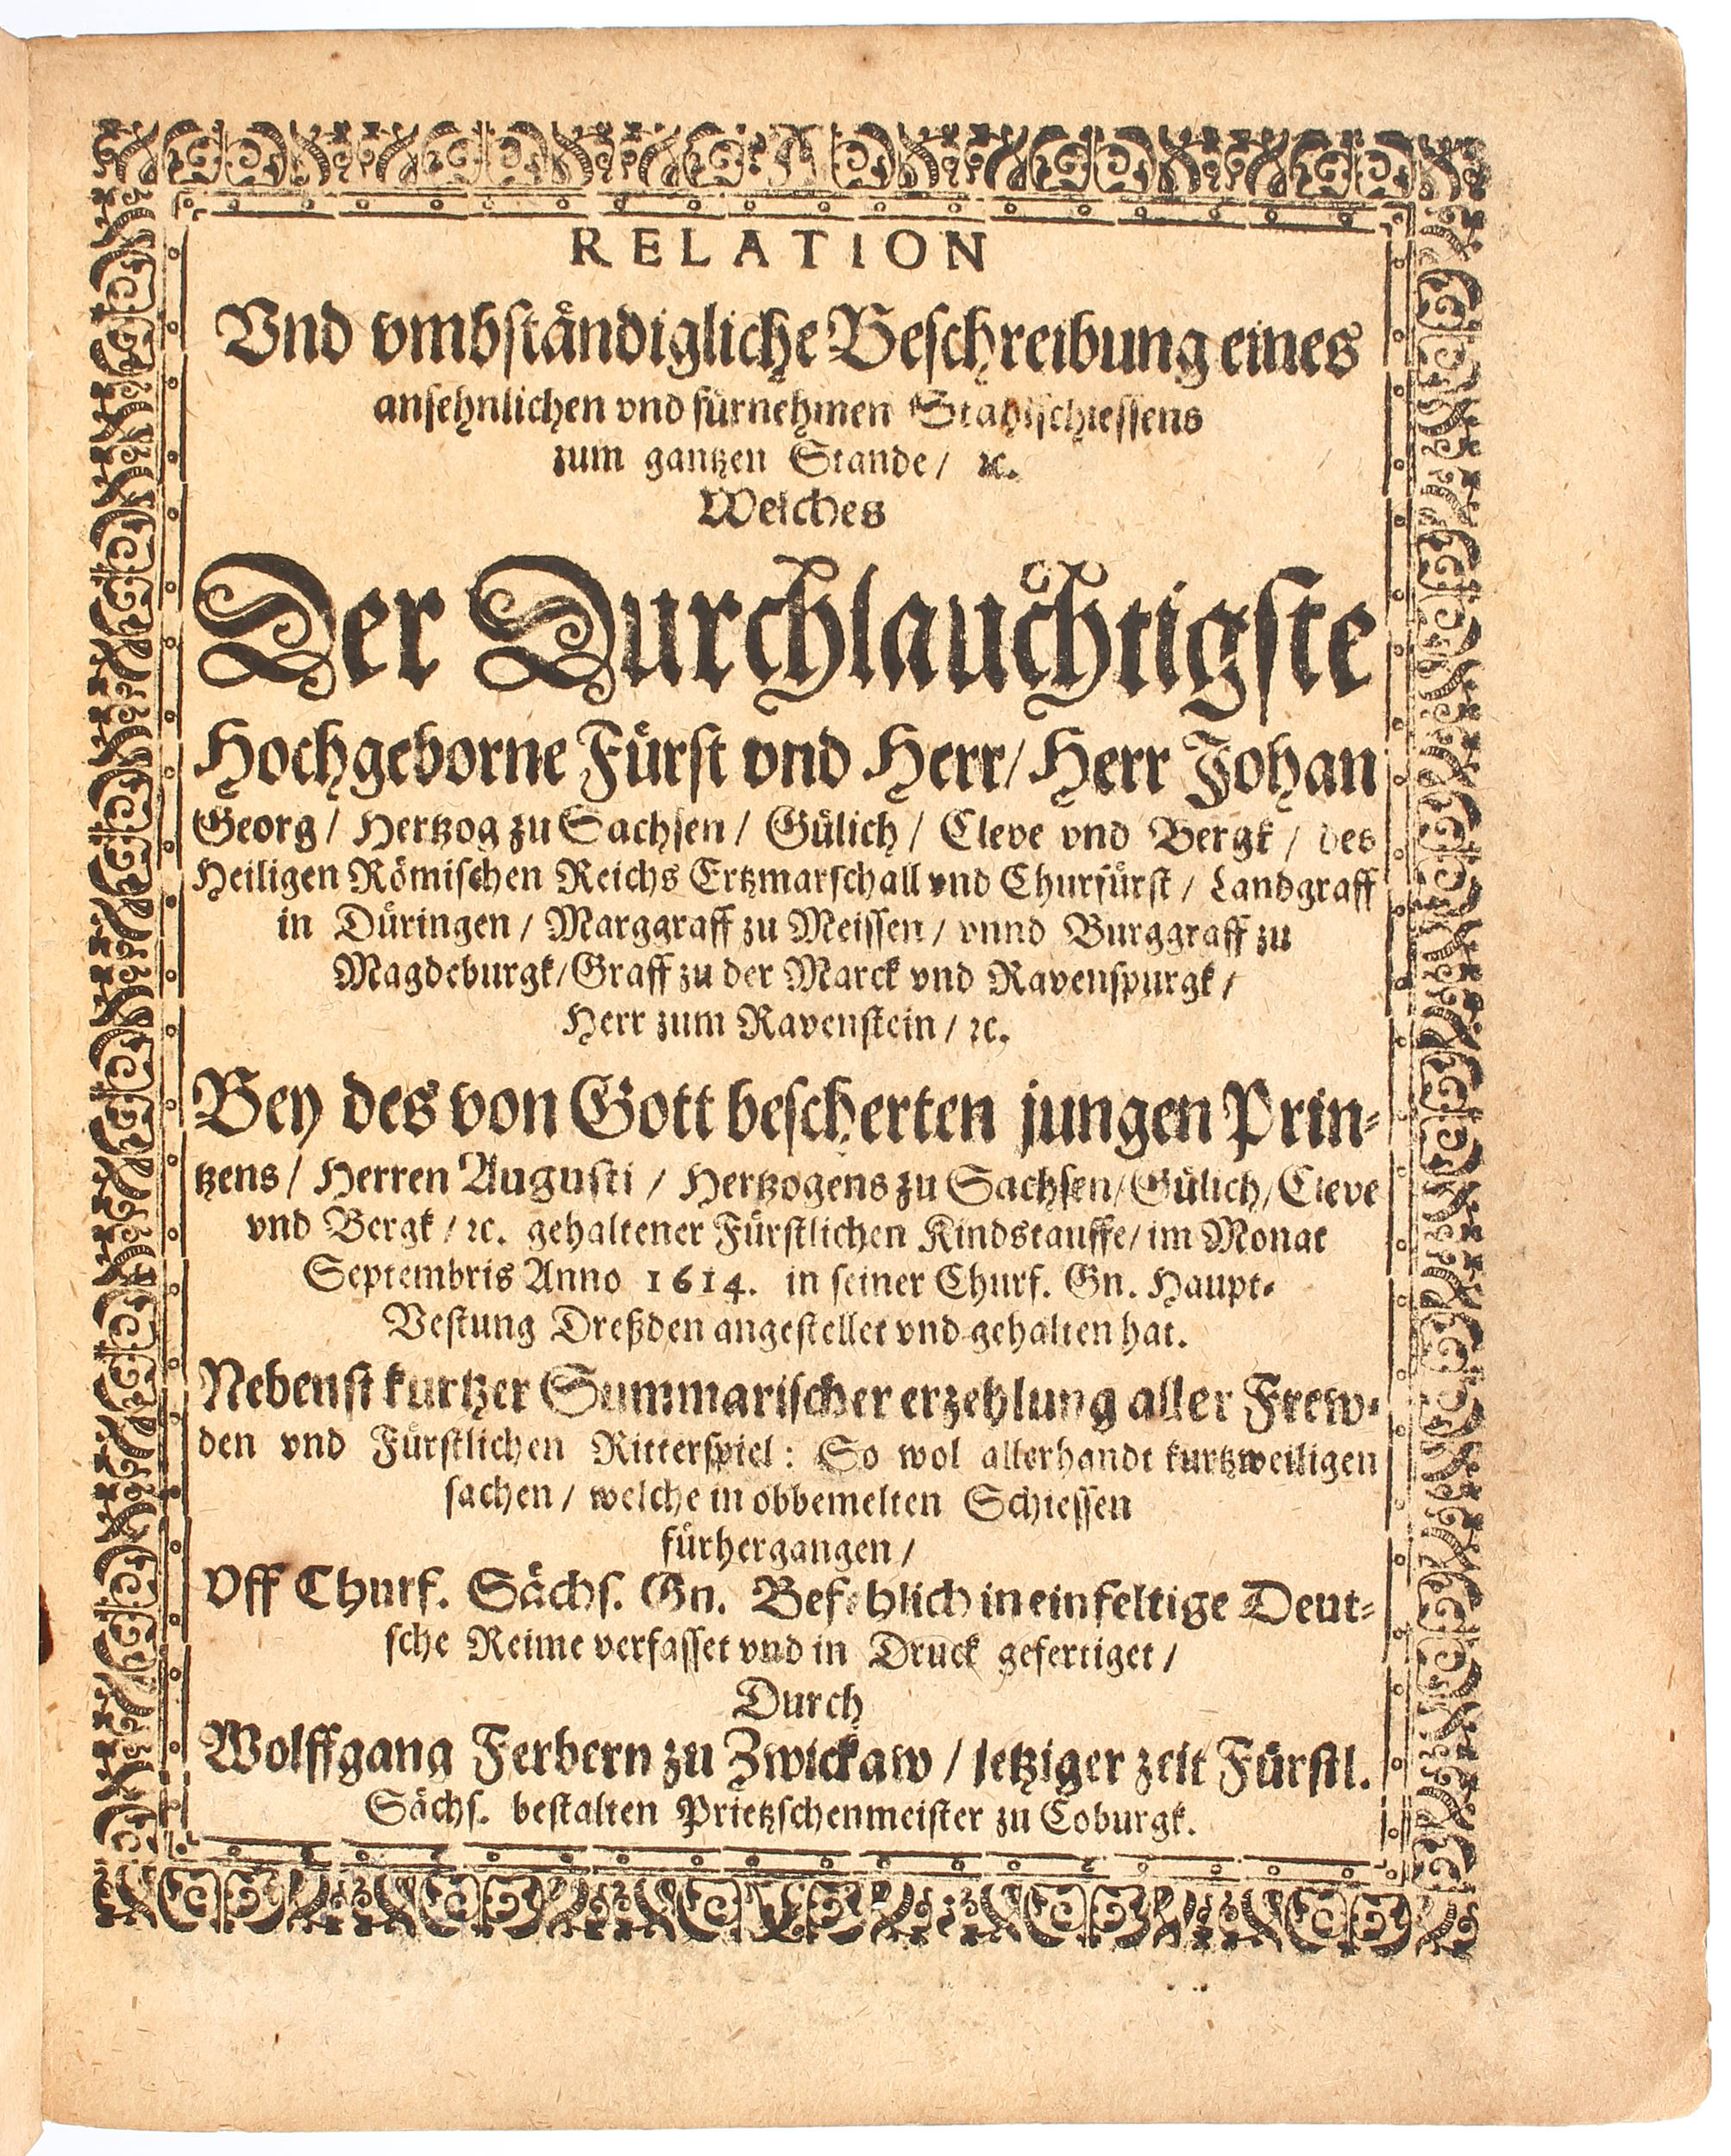 RELATION
Vnd vmbståndigliche Beschreibung eines
ansehnlichen vnd fürnehmen Stahlschiessens
zum gantzen Stande/ ꝛc.
Welches
Der Durchlauchtigste
Hochgeborne Fürst vnd Herr/ Herr Johan
Georg/ Hertzog zu Sachsen/ Gülich/ Cleve vnd Bergk/ des
Heiligen Römischen Reichs Ertzmarschall vnd Churfürst/ Landgraff
in Düringen/ Marggraff zu Meissen/ vnnd Burggraff zu
Magdeburgk/ Graff zu der Marck vnd Ravenspurgk/
Herr zum Ravenstein/ ꝛc.
Bey des von Gott bescherten jungen Prin-
tzens/ Herren Augusti/ Hertzogens zu Sachsen/ Gülich/ Cleve
vnd Bergk/ ꝛc. gehaltener Fürstlichen Kindstauffe/ im Monat
Septembris Anno 1614. in seiner Churf. Gn. Haupt-
Vestung Dreßden angestellet vnd gehalten hat.
Nebenst kurtzer Summarischer erzehlung aller Frew-
den vnd Fürstlichen Ritterspiel: So wol allerhandt kurtzweiligen
sachen/ welche in obbemelten Schiessen
fürhergangen/
Vff Churf. Sächs. Gn. Befehlich in einfeltige Deut-
sche Reime verfasset vnd in Druck gefertiget/
Durch
Wolffgang Ferbern zu Zwickaw/ jetziger zeit Fürstl.
Sächs. bestalten Prietzschenmeister zu Coburgk.